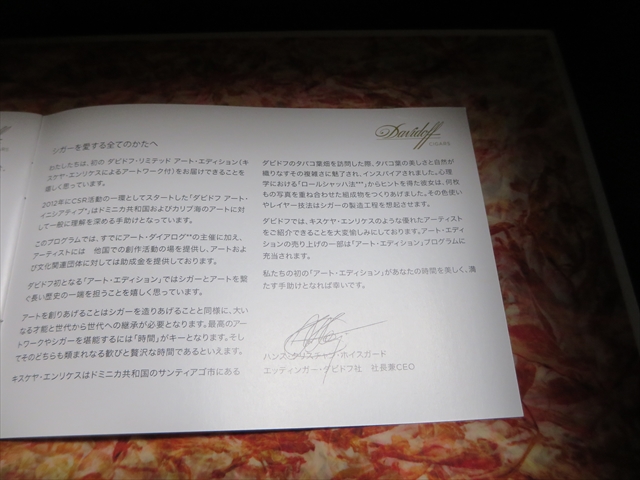 Davidoff
CIGARS
シガーを愛する全てのかたへ
わたしたちは、初の ダビドフ・リミテッド アート・エディション(キ
スケヤ・エンリケスによるアートワーク付)をお届けできることを
嬉しく思っています。
2012年にCSR活動の一環としてスタートした「ダビドフ アート・
イニシアティブ」はドミニカ共和国およびカリブ海のアートに対
して一般に理解を深める手助けとなっています。
このプログラムでは、すでにアート・ダイアログ**の主催に加え、
アーティストには 他国での創作活動の場を提供し、アートおよ
び文化関連団体に対しては助成金を提供しております。
ダビドフ初となる「アート・エディション」ではシガーとアートを繋
ぐ長い歴史の一端を担うことを嬉しく思っています。
アートを創りあげることはシガーを造りあげることと同様に、大い
なる才能と世代から世代への継承が必要となります。最高のアー
トワークやシガーを堪能するには「時間」がキーとなります。そし
てそのどちらも類まれなる歓びと贅沢な時間であるといえます。
キスケヤ・エンリケスはドミニカ共和国のサンティアゴ市にある
ダビドフのタバコ葉畑を訪問した際、タバコ葉の美しさと自然が
織りなすその複雑さに魅了され、インスパイアされました。心理
学における「ロールシャッハ法***」からヒントを得た彼女は、何枚
もの写真を重ね合わせた組成物をつくりあげました。その色使い
やレイヤー技法はシガーの製造工程を想起させます。
ダビドフでは、キスケヤ・エンリケスのような優れたアーティスト
をご紹介できることを大変愉しみにしております。アート・エディ
ションの売り上げの一部は「アート・エディション」プログラムに
充当されます。
私たちの初の「アート・エディション」があなたの時間を美しく、満
たす手助けとなれば幸いです。
ハンス・クリスチャン・ホイスガード
エッティンガー・ダビドフ社 社長兼CEO